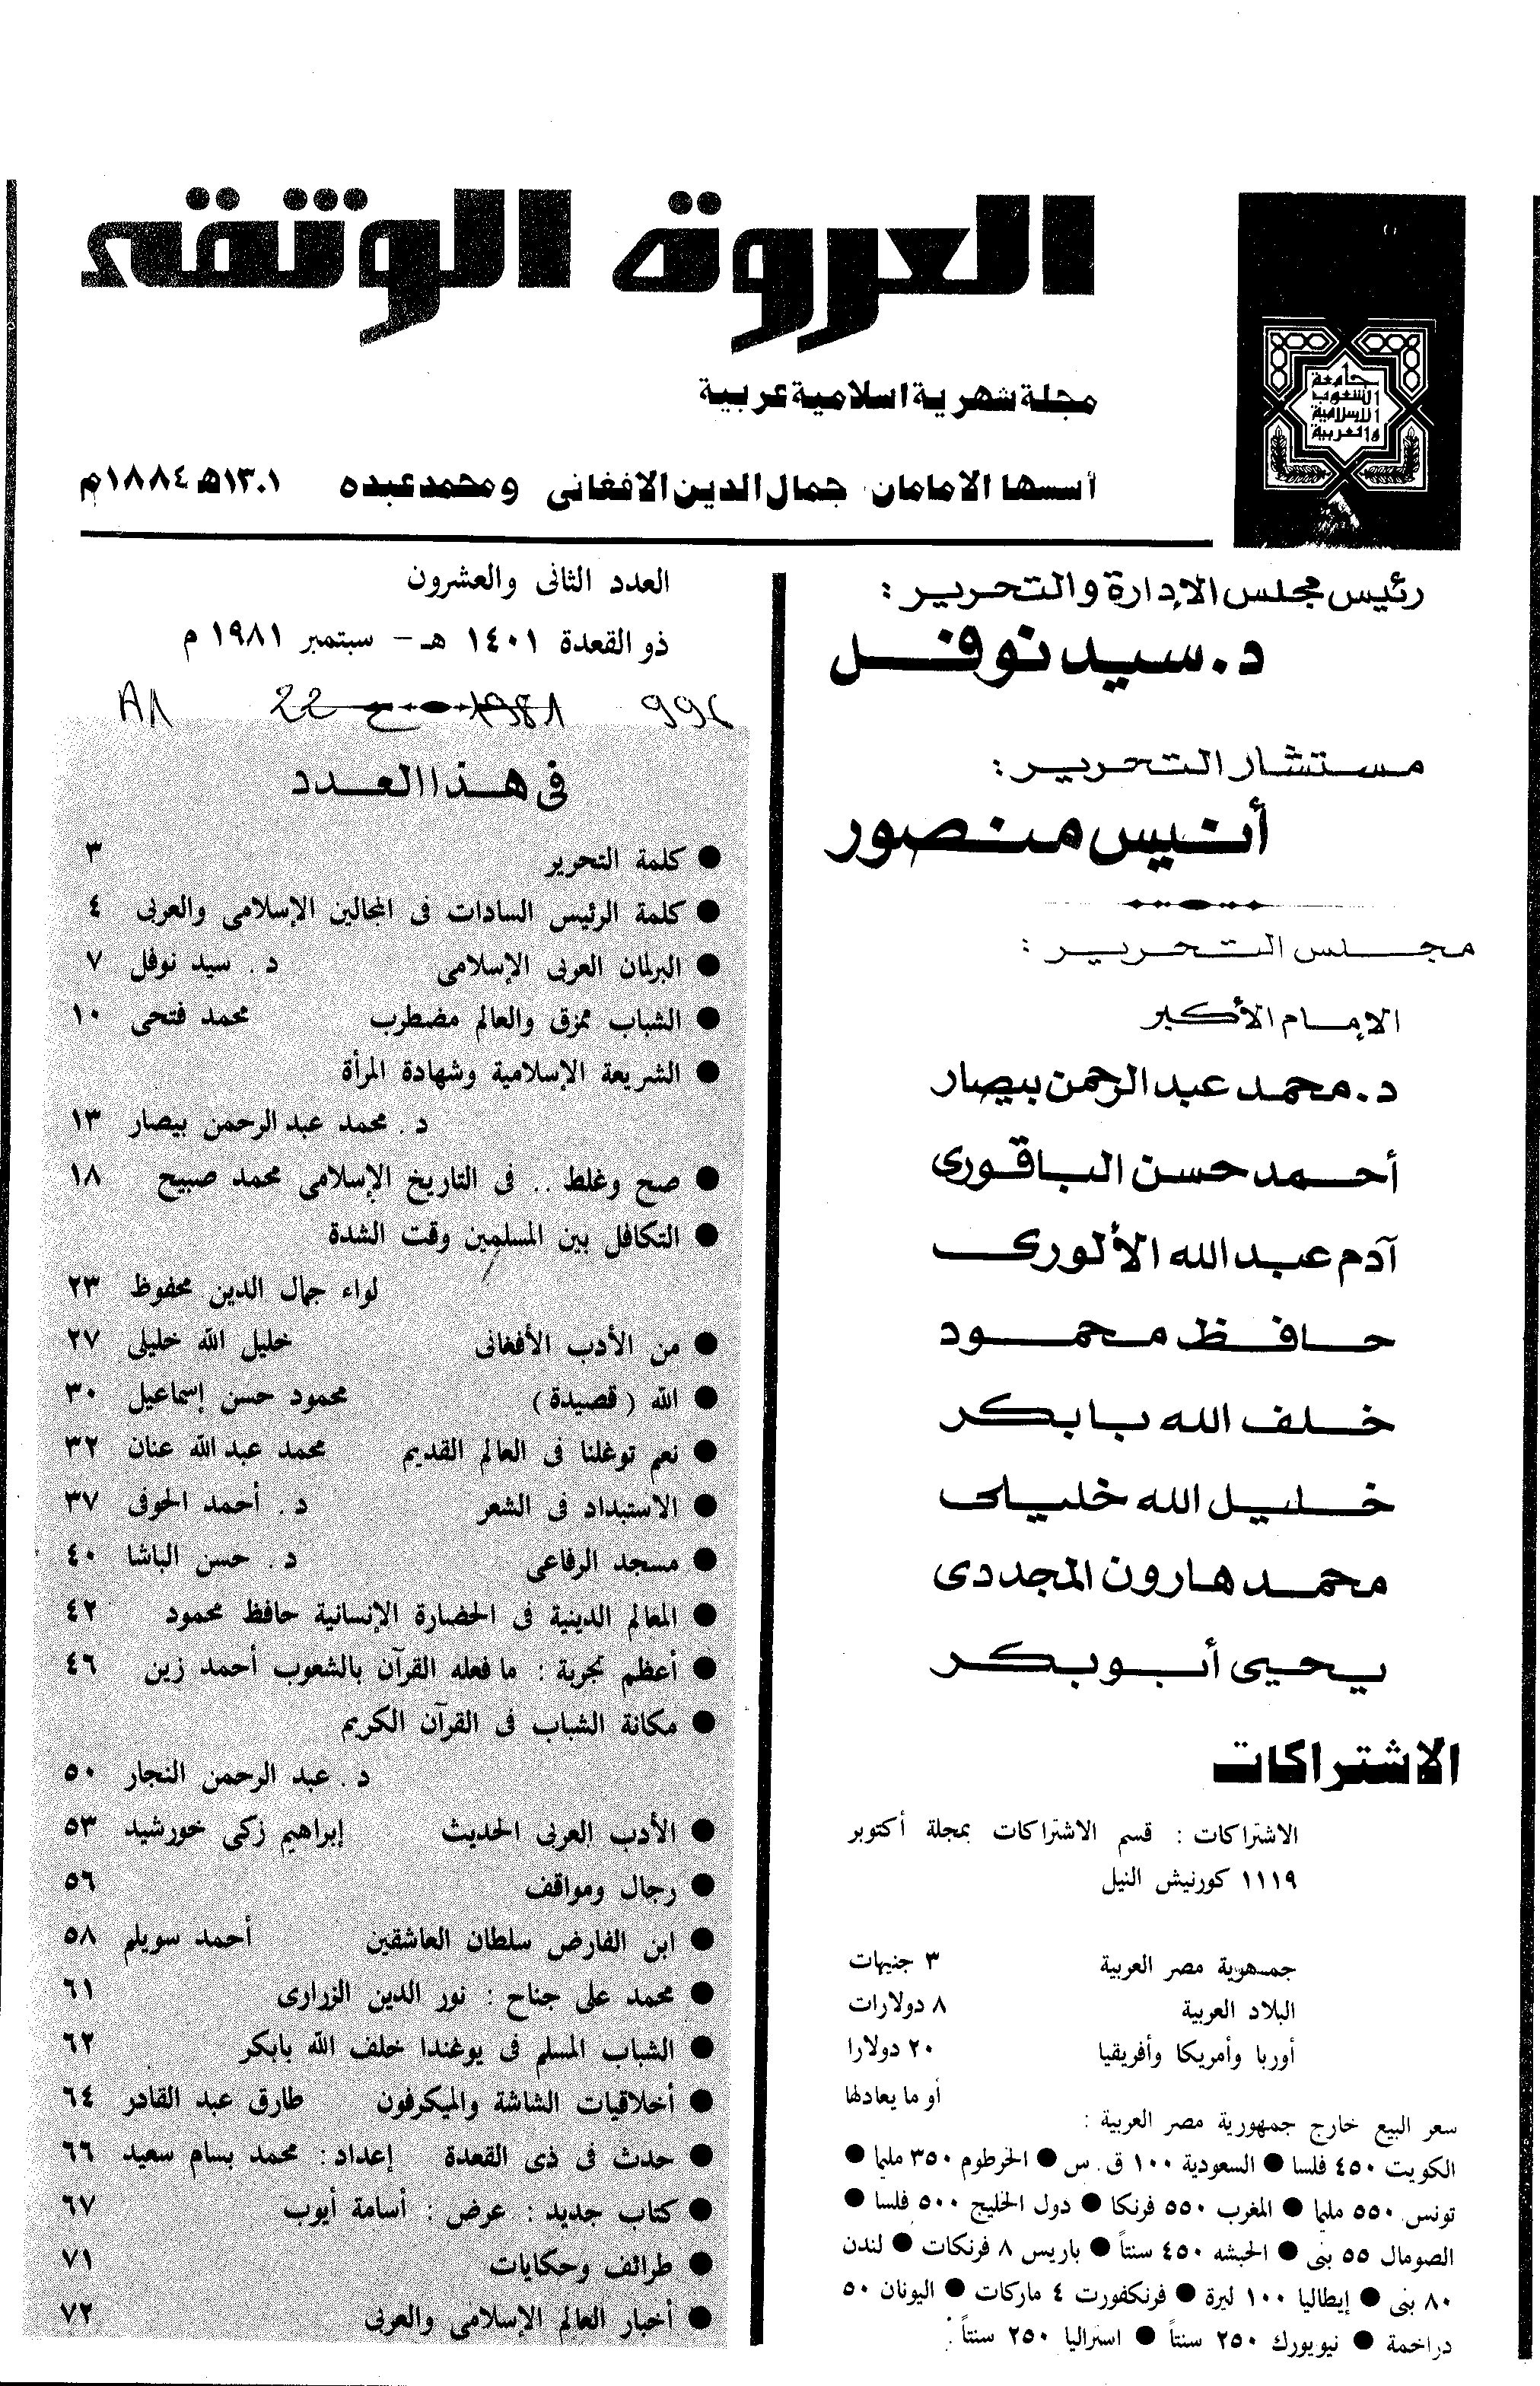 العروة الوثقى
جامعة
الشعوب
الإسلامية
والعربية
مجلة شهرية اسلامية عربية
أسسها الامامان جمال الدين الافغانى ومحمد عبده ١٣٠١هـ ١٨٨٤م
رئيس مجلس الإدارة والتحرير :
د. سيد نوفل
مستشار التحرير :
أنيس منصور
مجلس التحرير :
الإمام الأكبر
د. محمد عبد الرحمن بيصار
أحمد حسن الباقورى
آدم عبد الله الألورى
حافظ محمود
خلف الله بابكر
خليل الله خليلى
محمد هارون المجددى
يحيى أبو بكر
الاشتراكات
الاشتراكات : قسم الاشتراكات بمجلة أكتوبر
١١١٩ كورنيش النيل
جمهوية مصر العربية ٣ جنيهات
البلاد العربية ٨ دولارات
أوربا وأمريكا وأفريقيا ٢٠ دولارا
أو ما يعادلها
سعر البيع خارج جمهورية مصر العربية :
الكويت ٤٥٠ فلسا ● السعودية ١٠٠ ق. س ● الخرطوم ٣٥٠ مليما ●
تونس ٥٥٠ مليما ● المغرب ٥٥٠ فرنكا ● دول الخليج ٥٠٠ فلسا ●
الصومال ٥٥ بنى ● الحبشه ٤٥٠ سنتاً ● باريس ٨ فرنكات ● لندن
٨٠ بنى ● إيطاليا ١٠٠ ليرة ● فرنكفورت ٤ ماركات ● اليونان ٥٠
دراخمة ● نيويورك ٢٥٠ سنتاً ● استراليا ٢٥٠ سنتاً
العدد الثانى والعشرون
ذو القعدة ١٤٠١ هـ - سبتمبر ١٩٨١ م
22 ع 1981 996
فى هذا العدد
● كلمة التحرير ٣
● كلمة الرئيس السادات فى المجالين الإسلامى والعربى ٤
● البرلمان العربى الإسلامى د. سيد نوفل ٧
● الشباب ممزق والعالم مضطرب محمد فتحى ١٠
● الشريعة الإسلامية وشهادة المرأة
د. محمد عبد الرحمن بيصار ١٣
● صح وغلط .. فى التاريخ الإسلامى محمد صبيح ١٨
● التكافل بين المسلمين وقت الشدة
لواء جمال الدين محفوظ ٢٣
● من الأدب الأفغانى خليل الله خليلى ٢٧
● الله ( قصيدة ) محمود حسن إسماعيل ٣٠
● نعم توغلنا فى العالم القديم محمد عبد الله عنان ٣٢
● الاستبداد فى الشعر د. أحمد الحوفى ٣٧
● مسجد الرفاعى د. حسن الباشا ٤٠
● المعالم الدينية فى الحضارة الإنسانية حافظ محمود ٤٢
● أعظم تجربة : ما فعله القرآن بالشعوب أحمد زين ٤٦
● مكانة الشباب فى القرآن الكريم
د. عبد الرحمن النجار ٥٠
● الأدب العربى الحديث إبراهيم زكى خورشيد ٥٣
● رجال ومواقف ٥٦
● ابن الفارض سلطان العاشقين أحمد سويلم ٥٨
● محمد على جناح : نور الدين الزرارى ٦١
● الشباب المسلم فى يوغندا خلف الله بابكر ٦٢
● أخلاقيات الشاشة والميكرفون طارق عبد القادر ٦٤
● حدث فى ذى القعدة إعداد : محمد بسام سعيد ٦٦
● كتاب جديد : عرض : أسامة أيوب ٦٧
● طرائف وحكايات ٧١
● أخبار العالم الإسلامى والعربى ٧٢